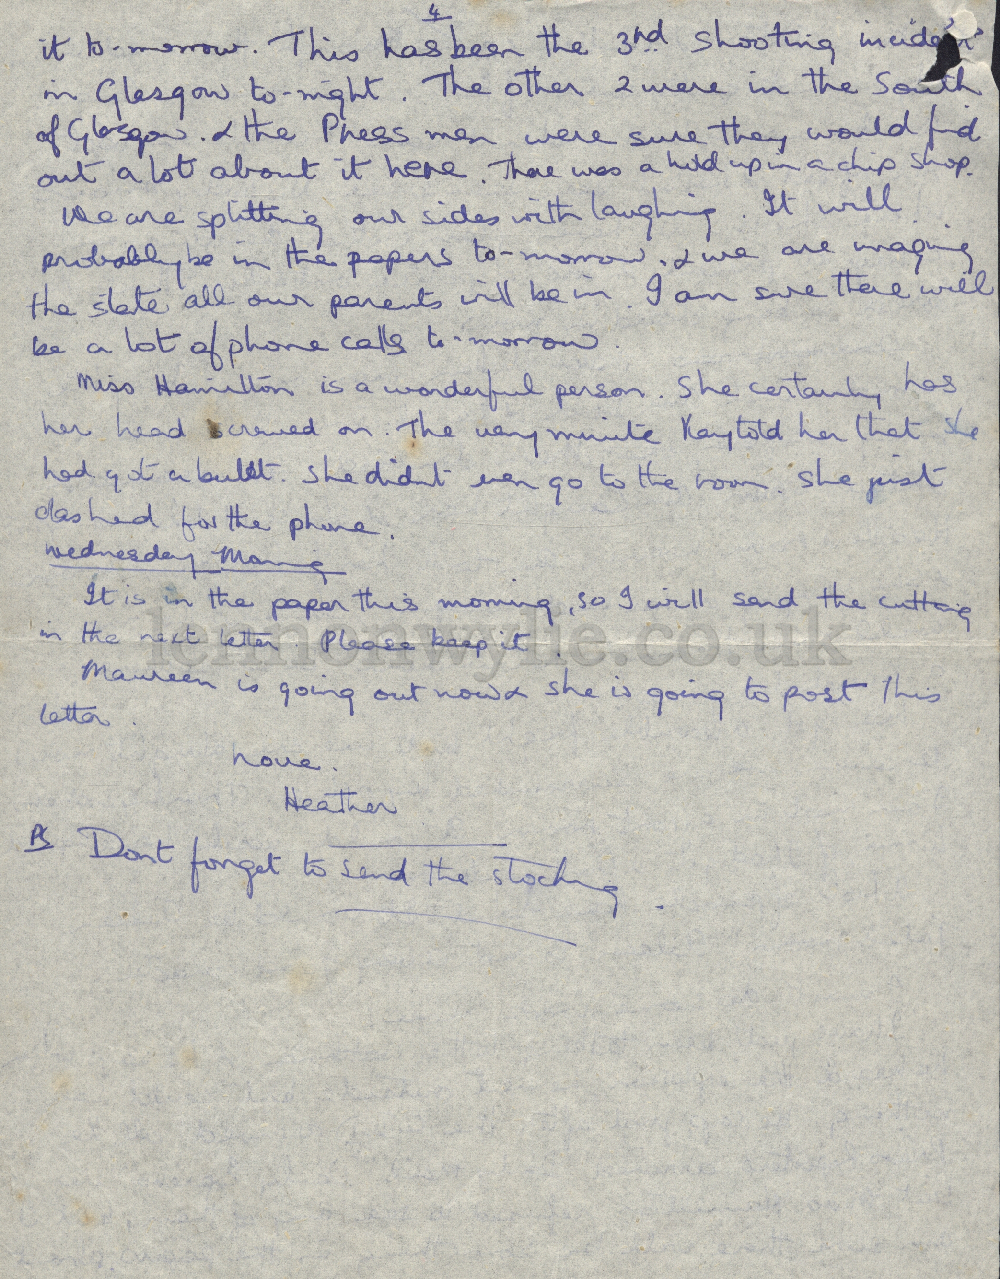 4
it to-morrow. This has been the 3rd shooting incident
in Glasgow to-night. The other 2 were in the South
of Glasgow. & the Press men were sure they would find
out a lot about it here. There was a hold up in a chip shop.
We are splitting our sides with laughing. It will
probably be in the papers to-morrow. & we are imaging
the state all our parents will be in. I am sure there will
be a lot of phone calls to-morrow.
Miss Hamilton is a wonderful person. She certainly has
her head screwed on. The very minute Kay told her that she
had got a bullet. She didn't even go to the room. She just
dashed for the phone.
Wednesday Morning
It is in the paper this morning, so I will send the cutting
in the next letter Please keep it.
Maureen is going out now & she is going to post this
letter.
Love.
Heather
PS Dont forget to send the stocking.
lennonwylie.co.uk